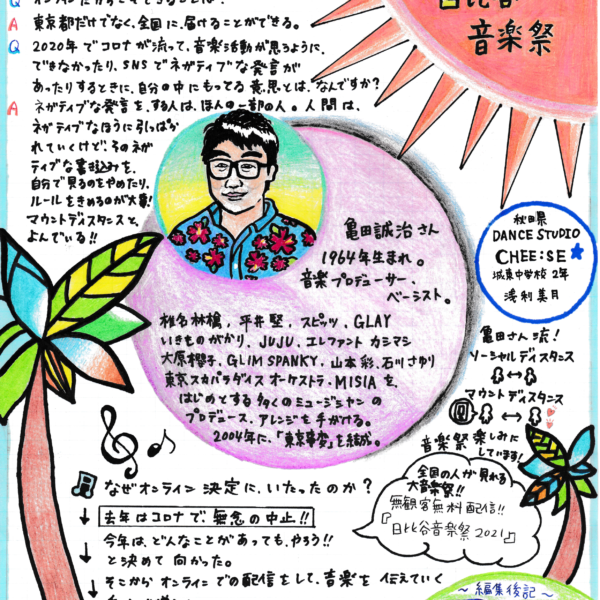 東京都だけでなく、全国に、届けることができる。
Q 2020年でコロナが流って、音楽活動が思うように、
できなかったり、SNSでネガティブな発言が
あったりするときに、自分の中にもってる意思とは、なんですか?
A ネガティブな発言を、する人は、ほんの一部の人。人間は、
ネガティブなほうに引っぱか
れていくけど、そのネガ
ティブな書き込みを、
自分で見るのをやめたり、
ルールをきめるのが大事!
マウントディスタンスと、
よんでいる!!
日比谷
音楽祭
亀田誠治さん
1964年生まれ。
音楽プロデューサー、
ベーシスト。
椎名林檎, 平井堅, スピッツ, GLAY
いきものがかり, JUJU, エレファントカシマシ
大原櫻子, GLIM SPANKY, 山本彩, 石川さゆり
東京スカパラダイスオーケストラ・MISIAを、
はじめとする多くのミュージシャンの
プロデュース、アレンジを手がける。
2004年に、「東京事変」を結成。
秋田県
DANCE STUDIO
CHEE:SE
城東中学校 2年
浅利美月
亀田さん流!
ソーシャルディスタンス
マウントディスタンス
音楽祭楽しみに
しています!
全国の人が見れる
大音楽祭!!
無観客無料配信!!
『日比谷音楽祭2021』
なぜオンライン決定に、いたったのか?
↓ 去年はコロナで、無念の中止!!
↓ 今年は、どんなことがあっても、やろう!!
と決めて向かった。
↓ そこからオンラインでの配信をして、音楽を伝えていく
~編集後記~